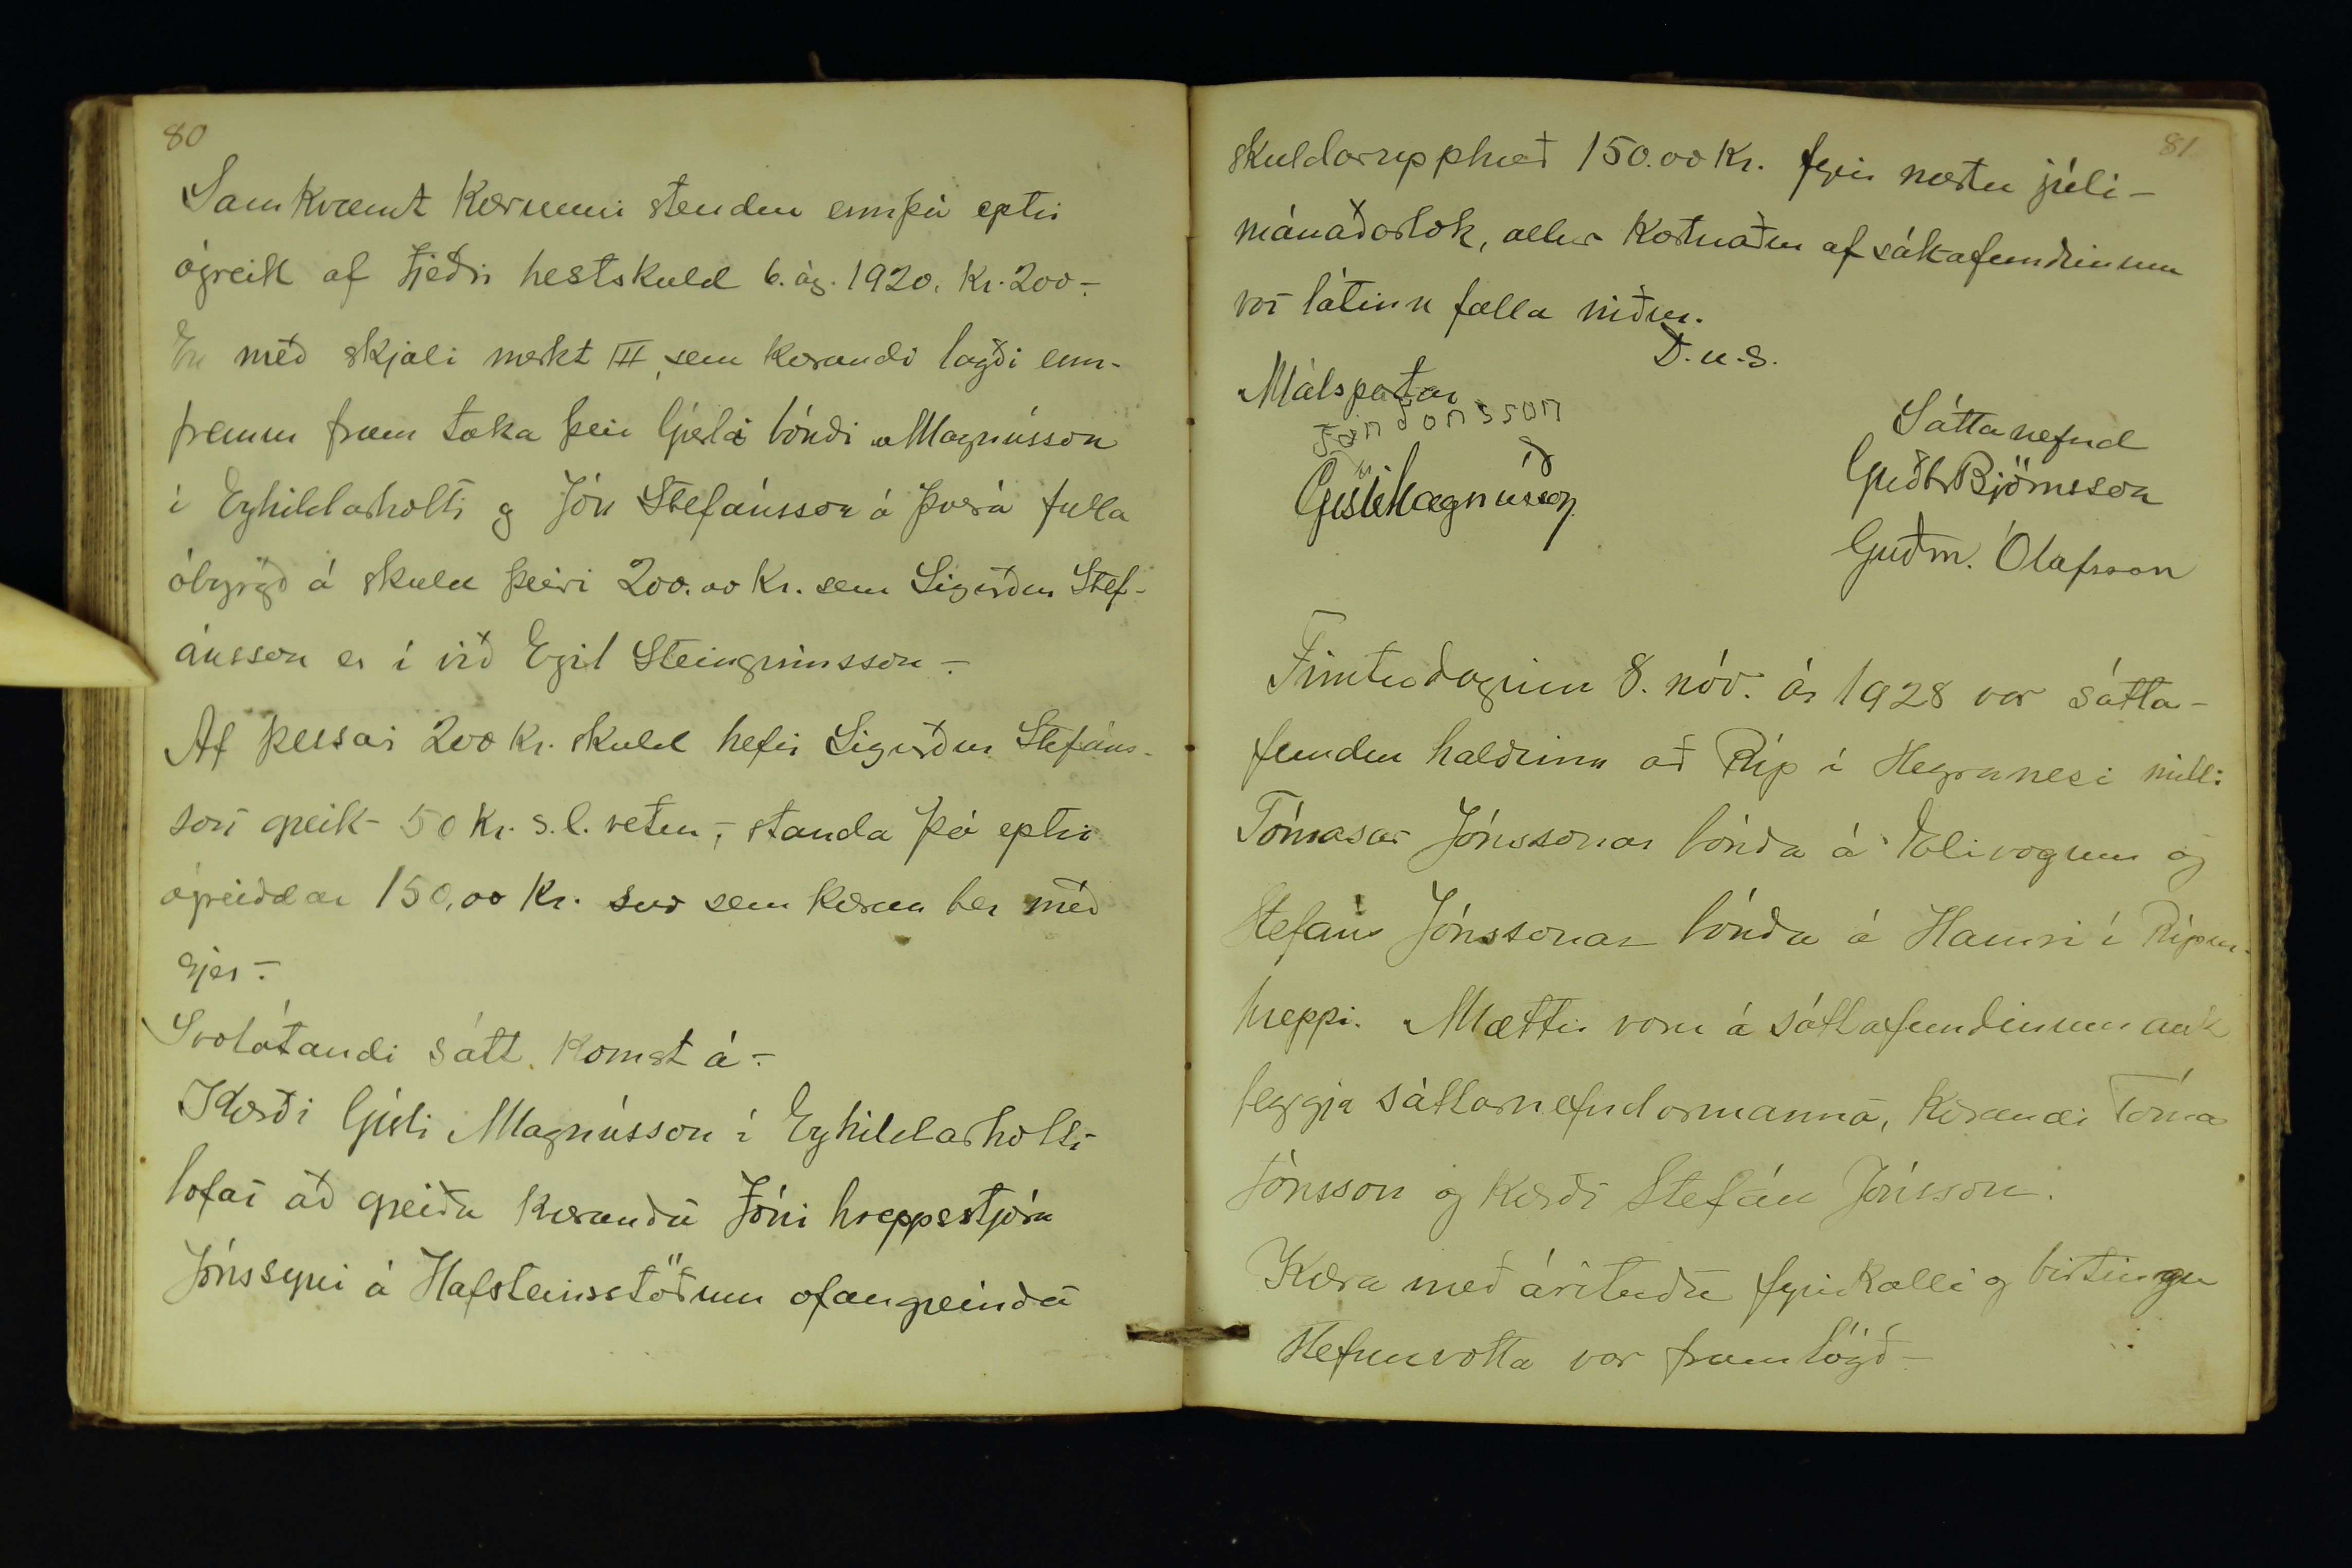 80
Samkvæmt kærunni stendur ennþá eptir
ógreitt af tjeðri hestskuld 6. ág. 1920. Kr. 200-
En með skjali merkt III, sem kærandi lagði enn-
fremur fram taka þeir Gísli bóndi Magnússon
í Eyhildarholti og Jón Stefánsson á Þverá fulla
ábyrgð á skuld þeirri 200.00 Kr. sem Sigurður Stef-
ánsson er í við Egil Steingrímsson -
Af þessari 200 Kr. skuld hefir Sigurður Stefáns-
son greitt 50 Kr. s.l. vetur, standa þá eptir
ógreiddar 150,00 Kr. svo sem kæran ber með
sjer -
Svolátandi sátt komst á -
Kærði Gísli Magnússon í Eyhildarholti
lofar að greiða kæranda Jóni hreppstjóra
Jónssyni á Hafsteinsstöðum ofangreinda
81
skuldarupphæð 150.00 Kr. fyrir næstu júlí-
mánaðarlok, allur kostnaður af sáttafundinum
var látinn falla niður.
D.u.s.
Málspartar
Jón Jónsson
Gísli Magnússon
Sáttanefnd
Guðbr Björnsson
Guðm. Ólafsson
Fimtudaginn 8. nóv. ár 1928 var sátta-
fundur haldinn að Ríp í Hegranesi milli
Tómasar Jónssonar bónda á Elivogum og
Stefáns Jónssonar bónda á Hamri í Rípur-
hreppi. Mættir voru á sáttafundinum auk
beggja sáttarnefndarmanna, kærandi Tómas
Jónsson og kærði Stefán Jónsson.
Kæra með árituðu fyrirkalli og birtingu
stefnuvotta var framlögð -